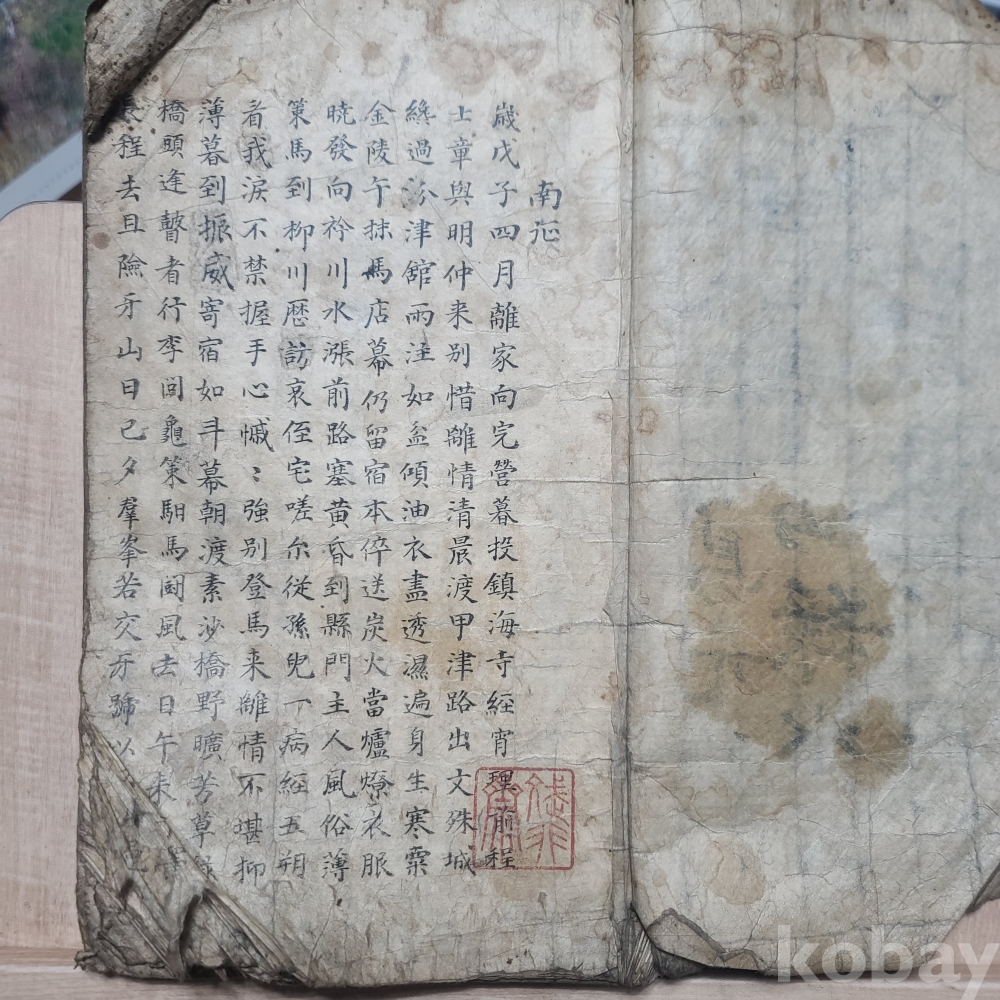 南征
歲戊子四月離家向完營暮投鎮海寺經宵理前程
士章與明仲来别惜離情清晨渡甲津路出文殊城
纔過汾津舘雨注如盆傾油衣盡透濕遍身生寒粟
金陵午抹馬店幕仍留宿本倅送炭火當爐燎衣服
曉發向衿川水漲前路塞黄昏到縣門主人風俗薄
策馬到柳川歷訪哀侄宅嗟尔從孫兒一病經五朔
看我淚不禁握手心慽〻強别登馬来離情不堪抑
薄暮到振威寄宿如斗幕朝渡素沙橋野曠芳草綠
橋頭逢瞽者行李同龜策馹馬闘風去日午未
長程去且險牙山日已夕羣峯若交牙歸以
kobay